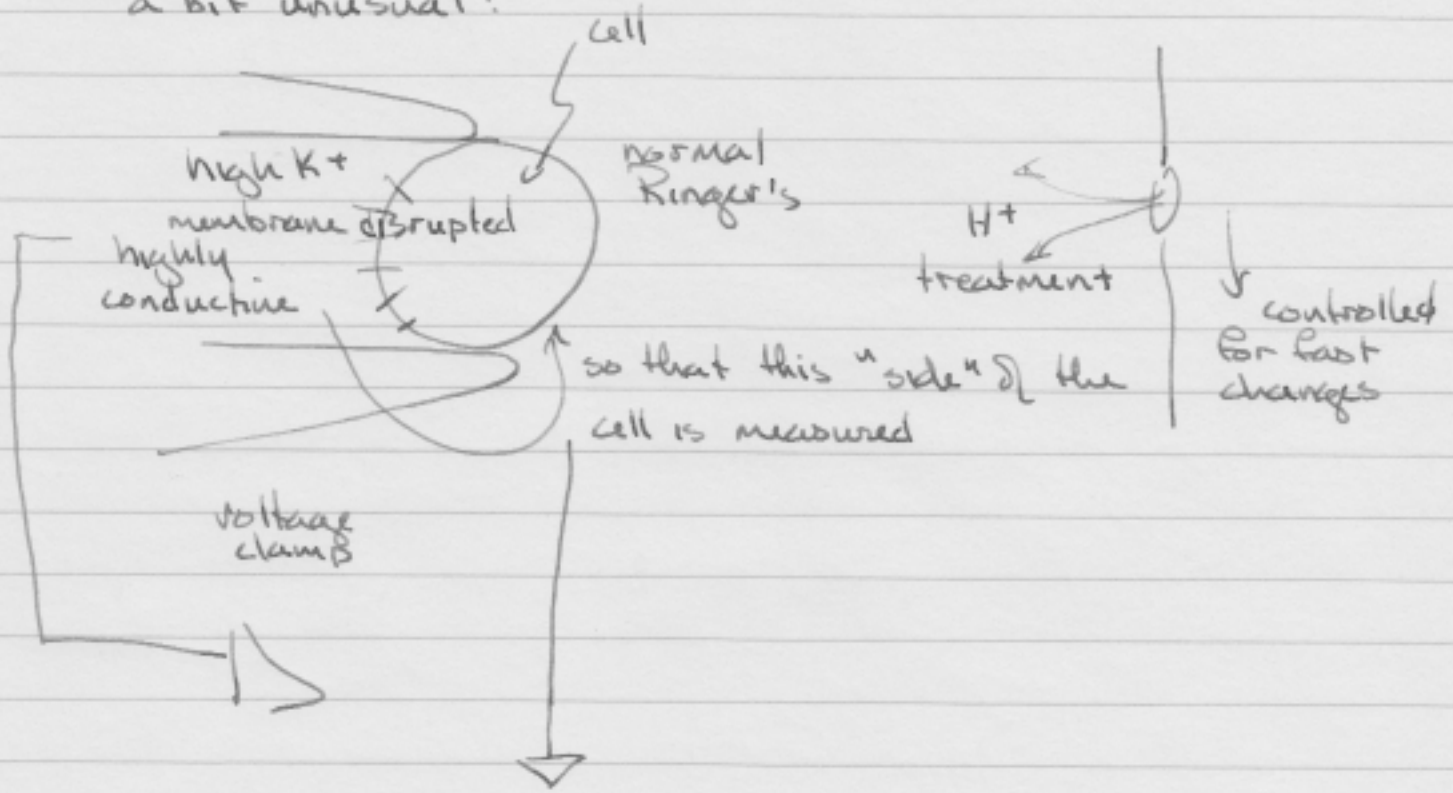 a bit unusual:
cell
high K+
membrane disrupted
highly
conductive
normal
Ringer's
H+
treatment
controlled
for fast
changes
so that this "side" of the
cell is measured
voltage
clamp